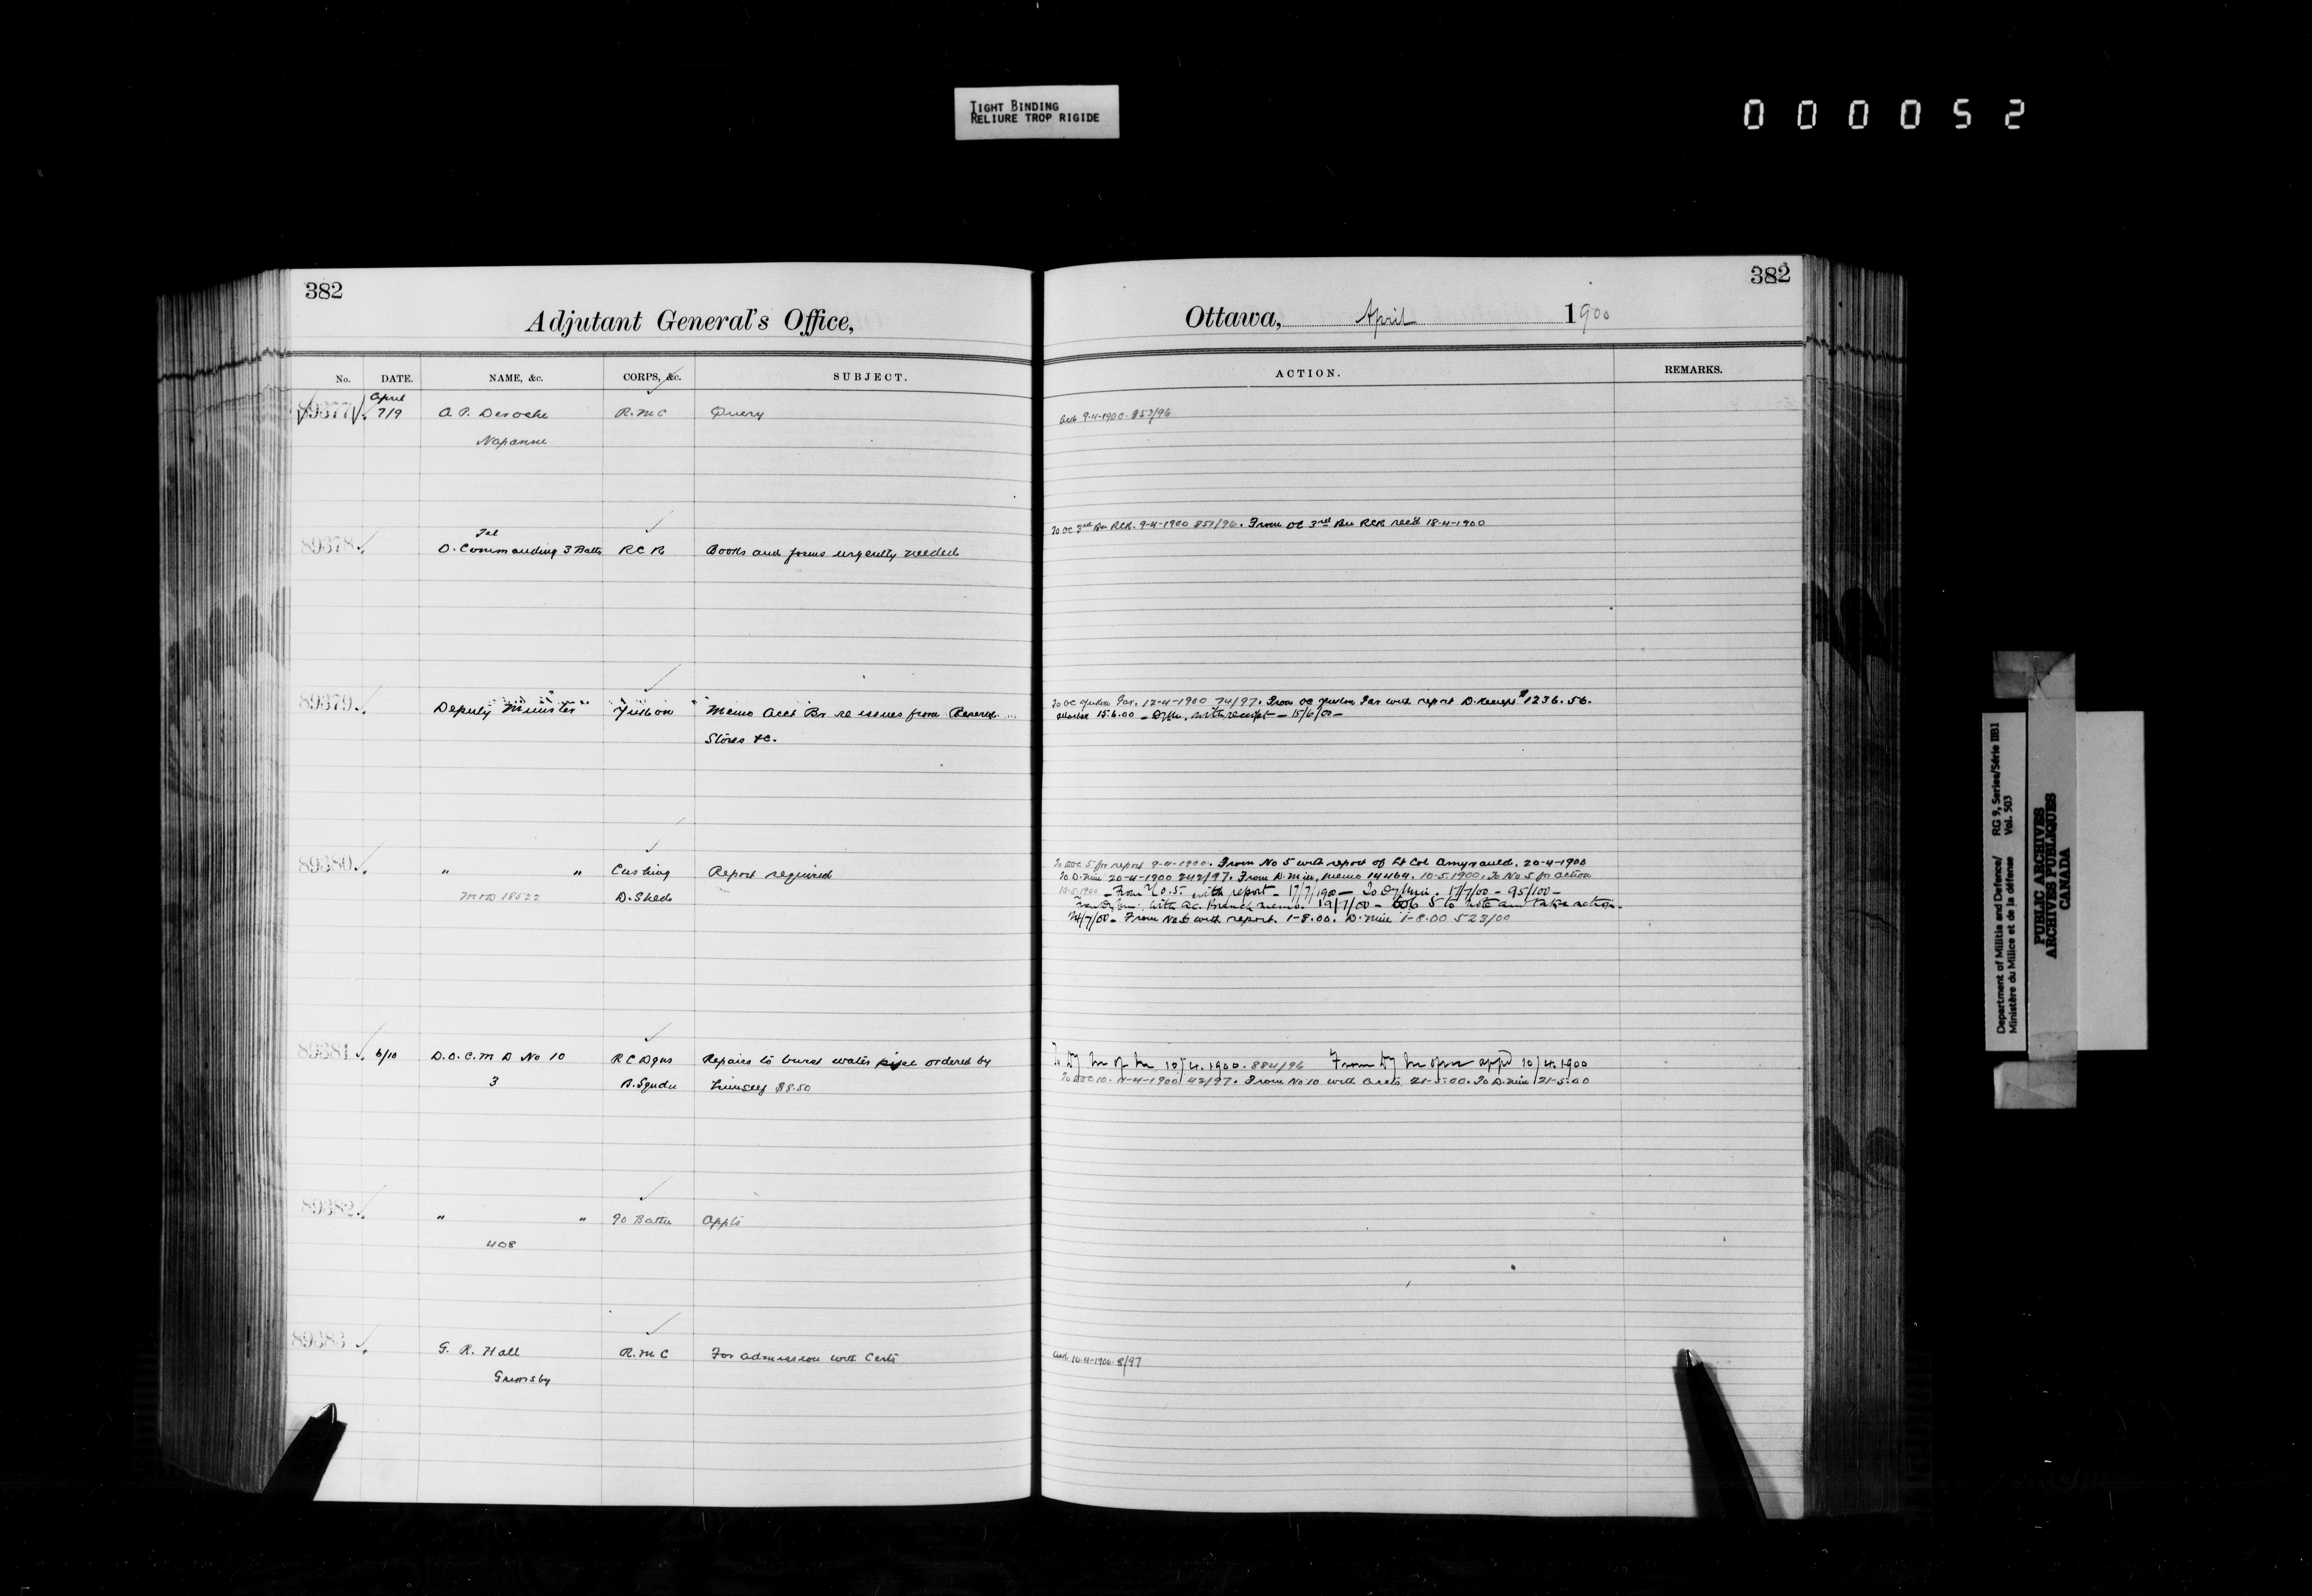 TIGHT BINDING
RELIURE TROP RIGIDE
000052
382
Adjutant General's Office,
No. DATE. NAME, &c. CORPS, &c. SUBJECT.
April
89377 7/9 A. P. Deroche R.M.C Query
Napanee
Tel
89378 O. Commanding 3 Battn R C R Books and forms urgently needed
89379 Deputy Minister Yukon Memo Acct Br re issues from Reserve
Stores &c.
89380 " " Cushing Report required
18522 D. Shed
89381 6/10 D.O.C. M D No 10 R C Dgns Repairs to burst water pipe ordered by
3 B. Sqdn $8.50
89382 " " 90 Battn Appts
408
89383 G. R. Hall R.M C For admission with Certs
Grimsby
382
Ottawa, April 1900
ACTION. REMARKS.
9-4-1900. 853/96
To OC 3rd Bn RCR. 9-4-1900 851/96. From OC 3rd Bn RCR rec'd 18-4-1900
To OC Yukon 12-4-1900 74/97. From OC Yukon with report D. Receipt $1236.56.
15.6.00 - with receipt - 15/6/00 -
To DOC 5 for report 9-4-1900. From No 5 with report of Lt Col Amyrauld. 20-4-1900
To D. Min 20-4-1900 242/97. From D. Min, memo 14464. 10-5-1900. To No 5 for action
10-5-1900 - From N.O.5. with report - 17/7/1900 - To Dy Min. 17/7/00 - 95/100 -
with Ac. Branch memo. 19/7/00 - 5 to note and take action.
24/7/00 - From No 5 with report. 1-8.00. D. Min 1-8.00 523/00
To Dy M of M 10/4.1900. 884/96 From Dy M of M app'd 10/4.1900
To DOC 10. 11-4-1900 42/97. From No 10 with accts 21-5-00. To D. Min 21-5-00
10-4-1900. 8/97
Department of Militia and Defence/ RG 9, Series/Série IIB1
Ministère du Milice et de la défense Vol. 503
PUBLIC ARCHIVES
ARCHIVES PUBLIQUES
CANADA